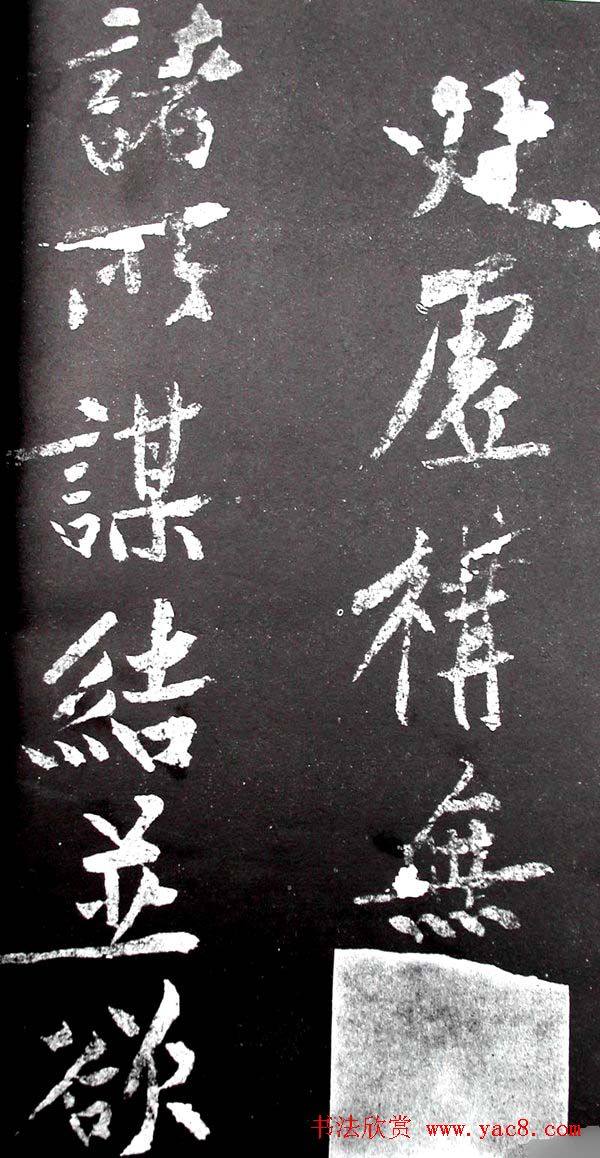 虚構無
諸所謀結並欲
书法欣赏 www.yac8.com